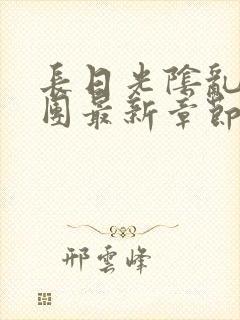 長日光陰亂
團最新章節
邢雲峰